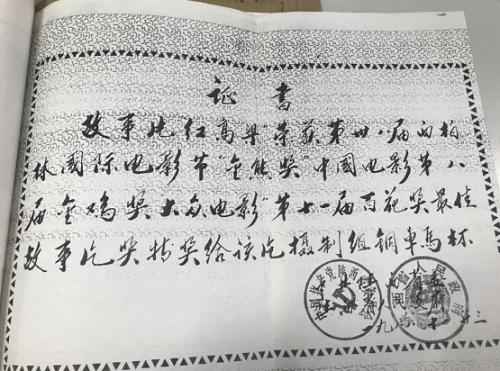 证书
故事片红高粱荣获第卅八届西柏
林国际电影节“金熊奖”中国电影第八
届金鸡奖大众电影“第十一届百花奖最佳
故事片奖特奖给该片摄制组铜车马杯
一九八